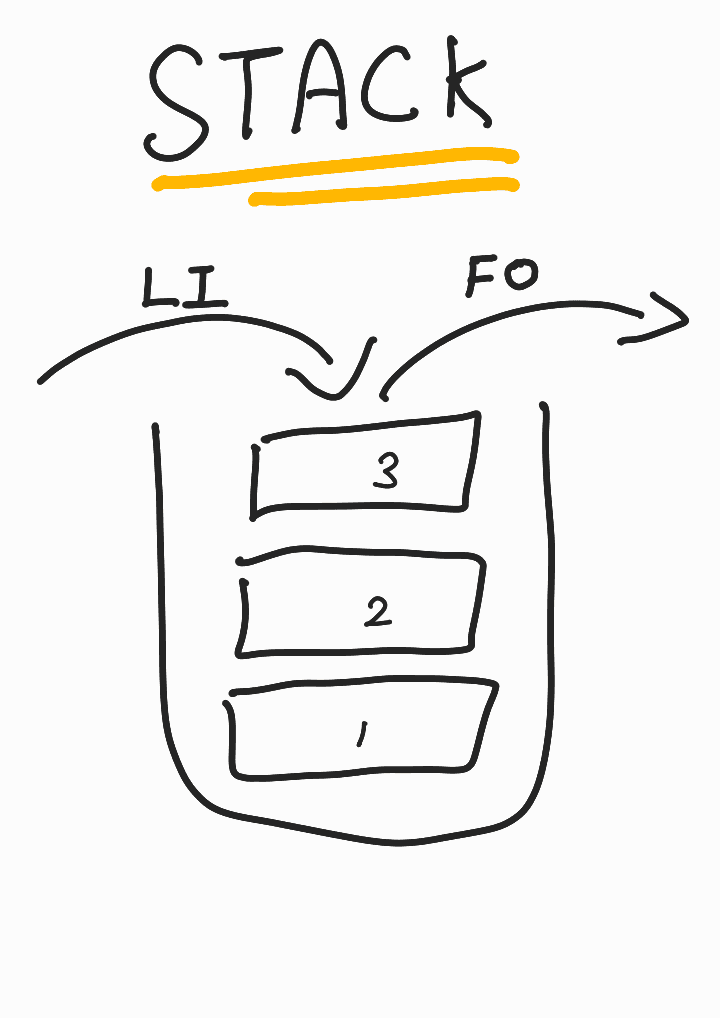 STACK
LI FO
3
2
1